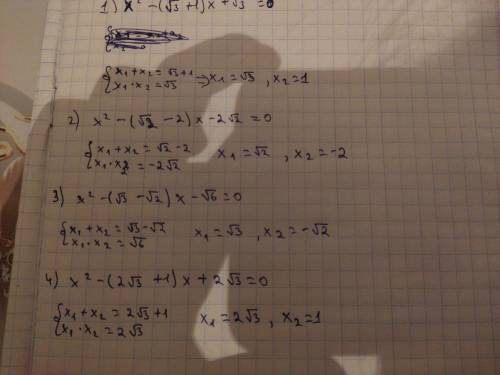 1) x² - (√3 + 1)x + √3 = 0
{ x₁ + x₂ = √3 + 1
x₁ · x₂ = √3 ⇒ x₁ = √3 , x₂ = 1
2) x² - (√2 - 2)x - 2√2 = 0
{ x₁ + x₂ = √2 - 2
x₁ · x₂ = -2√2 x₁ = √2 , x₂ = -2
3) x² - (√3 - √2)x - √6 = 0
{ x₁ + x₂ = √3 - √2
x₁ · x₂ = √6 x₁ = √3 , x₂ = -√2
4) x² - (2√3 + 1)x + 2√3 = 0
{ x₁ + x₂ = 2√3 + 1
x₁ · x₂ = 2√3 x₁ = 2√3 , x₂ = 1